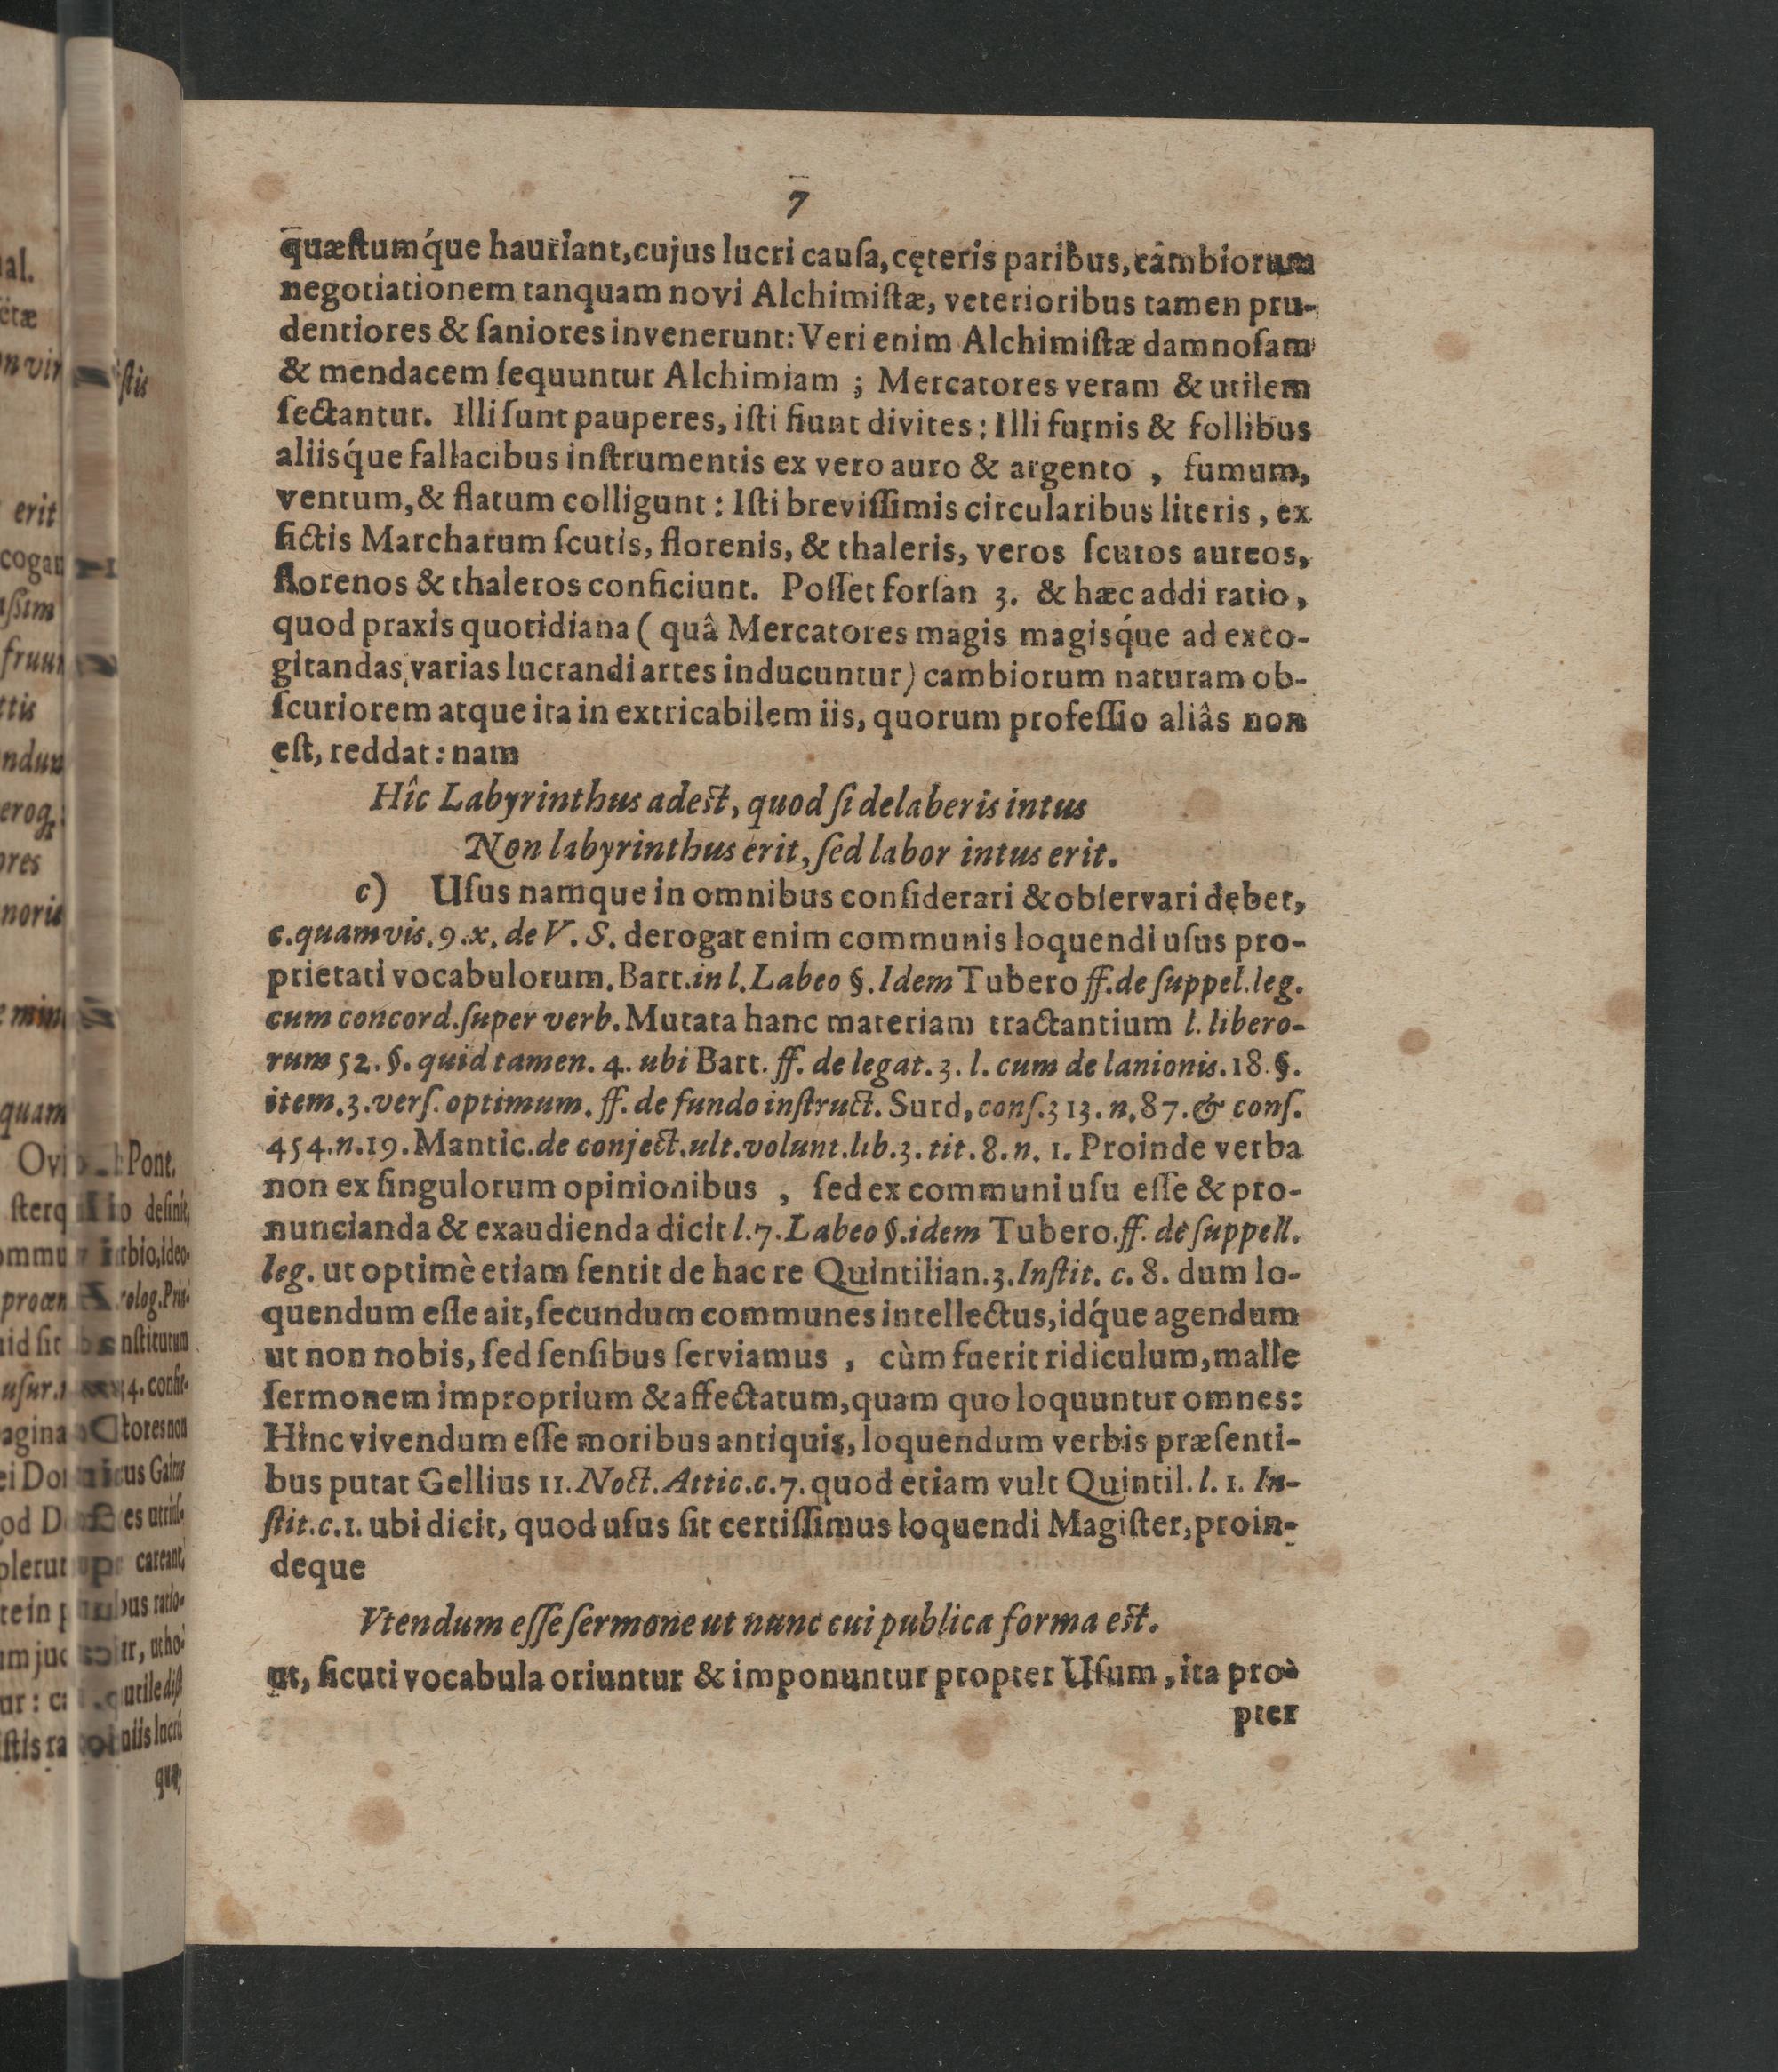 7
quæſtumq́ue hauriant, cujus lucri cauſa, cęteris paribus, cambiorum
negotiationem tanquam novi Alchimiſtæ, veterioribus tamen pru-
dentiores & ſaniores invenerunt: Veri enim Alchimiſtæ damnoſam
& mendacem ſequuntur Alchimiam ; Mercatores veram & utilem
ſectantur. Illi ſunt pauperes, iſti fiunt divites: Illi furnis & follibus
aliisq́ue fallacibus inſtrumentis ex vero auro & argento , fumum,
ventum, & flatum colligunt: Iſti breviſſimis circularibus literis, ex
fictis Marcharum ſcutis, florenis, & thaleris, veros ſcutos aureos,
florenos & thaleros conficiunt. Poſſet forſan 3. & hæc addi ratio,
quod praxis quotidiana ( quâ Mercatores magis magisq́ue ad exco-
gitandas varias lucrandi artes inducuntur) cambiorum naturam ob-
ſcuriorem atque ita in extricabilem iis, quorum profeſſio aliâs non
eſt, reddat: nam
Hîc Labyrinthus adeſt, quod ſi delaberis intus
Non labyrinthus erit, ſed labor intus erit.
c) Uſus namque in omnibus conſiderari & obſervari debet,
c. quamvis. 9. x. de V. S. derogat enim communis loquendi uſus pro-
prietati vocabulorum. Bart. in l. Labeo §. Idem Tubero ff. de ſuppel. leg.
cum concord. ſuper verb. Mutata hanc materiam tractantium l. libero-
rum 52. §. quid tamen. 4. ubi Bart. ff. de legat. 3. l. cum de lanionis. 18. §.
item. 3. verſ. optimum. ff. de fundo inſtruct. Surd, conſ. 313. n. 87. & conſ.
454. n. 19. Mantic. de conject. ult. volunt. lib. 3. tit. 8. n. 1. Proinde verba
non ex ſingulorum opinionibus , ſed ex communi uſu eſſe & pro-
nuncianda & exaudienda dicit l. 7. Labeo §. idem Tubero. ff. de ſuppell.
leg. ut optimè etiam ſentit de hac re Quintilian. 3. Inſtit. c. 8. dum lo-
quendum eſſe ait, ſecundum communes intellectus, idq́ue agendum
ut non nobis, ſed ſenſibus ſerviamus , cùm fuerit ridiculum, malle
ſermonem improprium & affectatum, quam quo loquuntur omnes:
Hinc vivendum eſſe moribus antiquis, loquendum verbis præſenti-
bus putat Gellius 11. Noct. Attic. c. 7. quod etiam vult Quintil. l. 1. In-
ſtit. c. 1. ubi dicit, quod uſus ſit certiſſimus loquendi Magiſter, proin-
deque
Vtendum eſſe ſermone ut nunc cui publica forma eſt.
ut, ſicuti vocabula oriuntur & imponuntur propter Uſum, ita pro-
pter